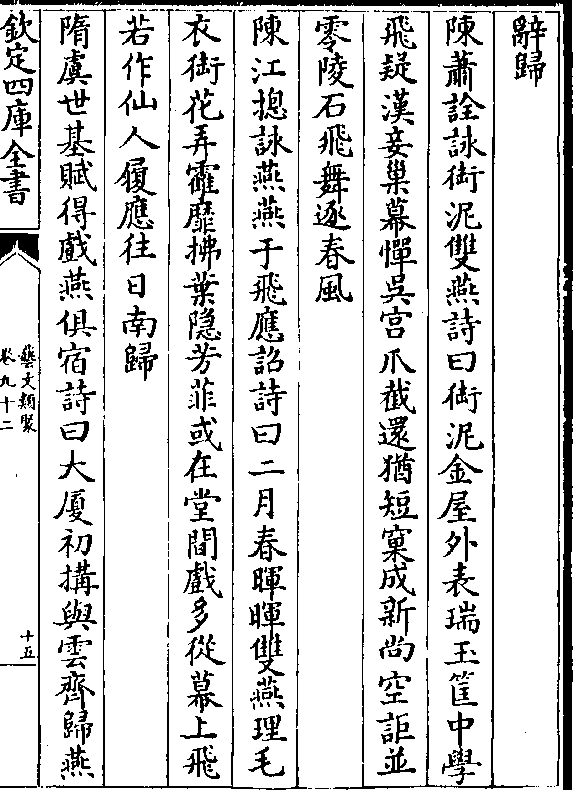 辭歸
陳蕭詮詠銜泥雙燕詩曰銜泥金屋外表瑞玉筐中學
飛疑漢妾巢幕憚吳宫爪截還猶短窠成新尚空詎並
零陵石飛舞逐春風
陳江摠詠燕燕于飛應詔詩曰二月春暉暉雙燕理毛
衣銜花弄䨥靡拂葉隱芳菲或在堂間戲多從幕上飛
若作仙人履應往日南歸
隋虞世基賦得戲燕俱宿詩曰大厦初搆與雲齊歸燕
欽定四庫全書
藝文類聚
卷九十二
十五